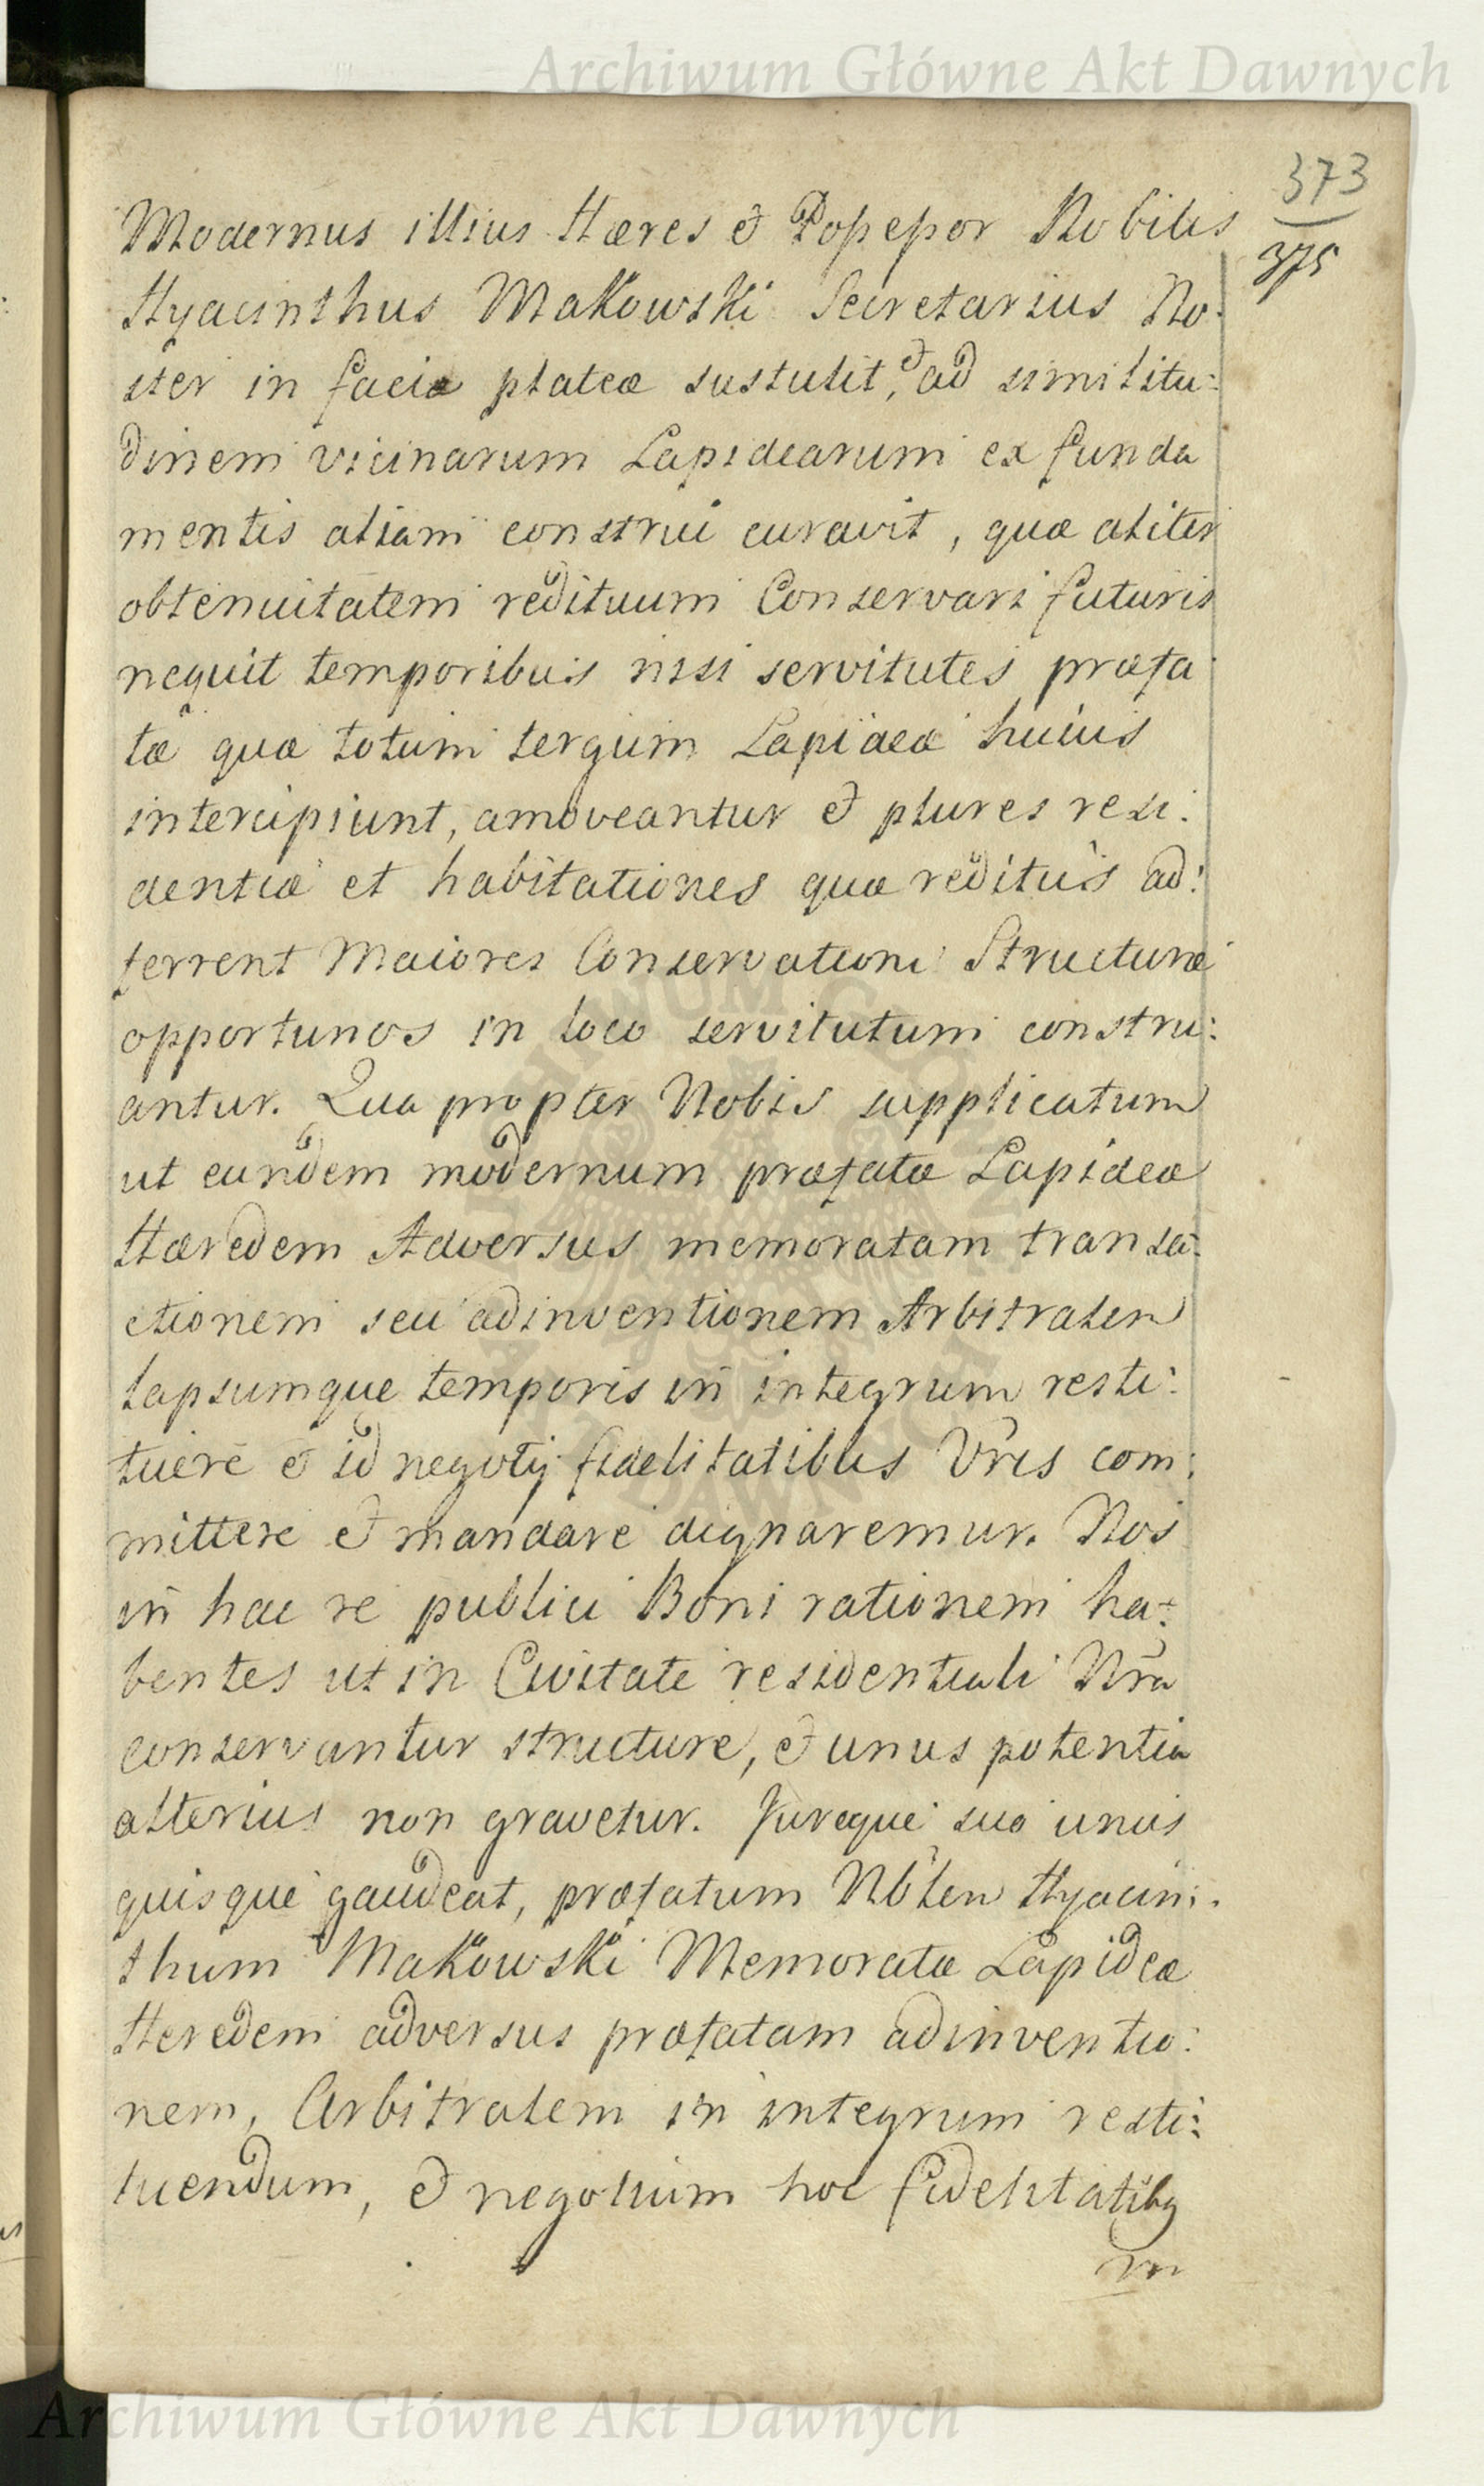 Archiwum Główne Akt Dawnych
373
375
Modernus illius Hæres & Possessor Nobilis
Hyacinthus Makowski Secretarius No:
ster in facie plateæ sustulit, & ad similitu:
dinem vicinarum Lapidearum ex funda
mentis aliam construi curavit, quæ aliter
obtenuitatem redituum Conservari futuris
nequit temporibus nisi servitutes præfa
tæ quæ totum tergum Lapideæ huius
intercipiunt, amoveantur & plures resi:
dentiæ et habitationes quæ reditus ad:
ferrent Maiores Conservationi Structuræ
opportunos in loco servitutum constru:
antur. Qua propter Nobis supplicatum
ut eundem modernum præfatæ Lapideæ
Hæredem Adversus memoratam transa:
ctionem seu adinventionem Arbitralem
lapsumque temporis in integrum resti:
tuere & id negotij fidelitatibus Vris com:
mittere & mandare dignaremur. Nos
in hac re publici Boni rationem ha:
bentes ut in Civitate residentiali Nra
conservantur structure, & unus potentia
alterius non gravetur. Jureque suo unus
quisque gaudeat, præfatum Nblem Hyacin:
thum Makowski Memoratæ Lapideæ
Heredem adversus præfatam adinventio:
nem, Arbitralem in integrum resti:
tuendum, & negotium hoc fidelitatibq
Archiwum Główne Akt Dawnych